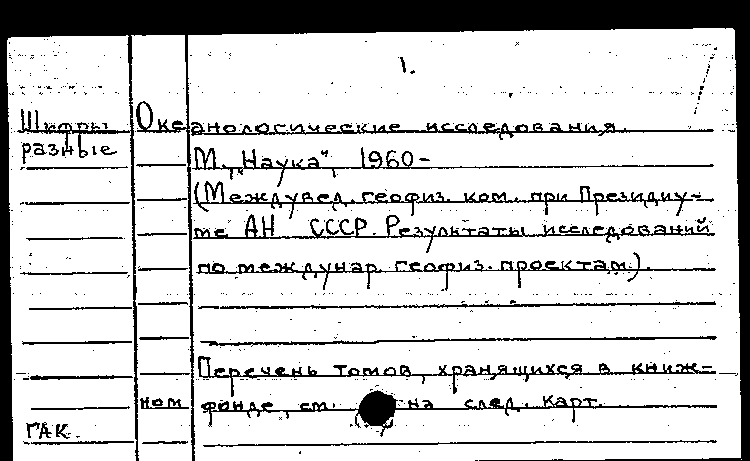 1.
Шифры Океанологические исследования.
разные М., „Наука", 1960-
(Междувед. геофиз. ком. при Президиу-
ме АН СССР. Результаты исследований
по междунар. геофиз. проектам.).
Перечень томов, хранящихся в книж-
ном фонде, см. на след. карт.
ГАК